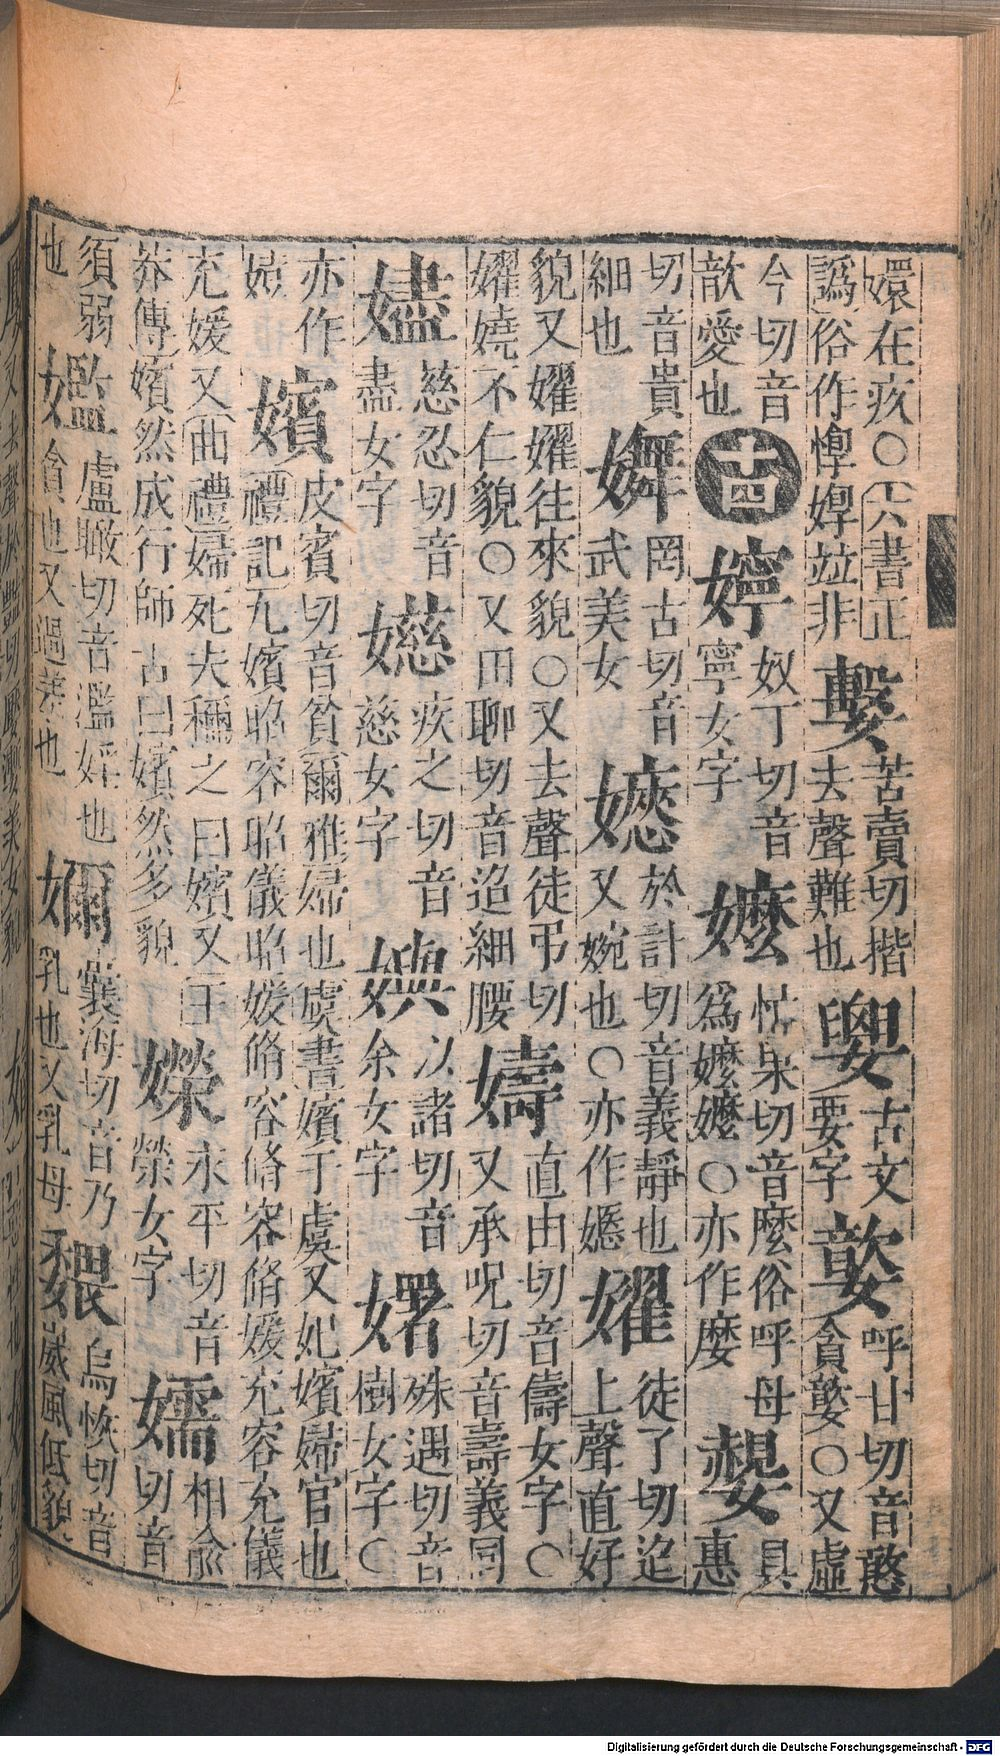 嬛在疚○六書正
譌俗作惸婷並非
苦賣切揩
去聲難也
古文
要字
㜝
呼甘切音憨
貪㜝○又虛
今切音
歆愛也
十四
嬣
奴丁切音
寧女字
嬤
忙果切音麼俗呼母
為嬤嬤○亦作麼
具
惠
切音貴
細也
罔古切音
武美女
於計切音義靜也
又婉也○亦作嫕
嬥
徒了切迢
上聲直好
貌又嬥嬥往來貌○又去聲徒弔切
嬥嬈不仁貌○又田聊切音迢細腰
嬦
直由切音儔女字○
又承呪切音壽義同
嬧
慈忍切音
盡女字
嬨
疾之切音
慈女字
嬩
以諸切音
余女字
殊遇切音
樹女字○
亦作
嬪
皮賓切音貧爾雅婦也虞書嬪于虞又妃嬪婦官也
禮記九嬪昭容昭儀昭媛脩容脩容脩媛充容充儀
充媛又曲禮婦死夫稱之曰嬪又王
莽傳嬪然成行師古曰嬪然多貌
嬫
永平切音
榮女字
嬬
相俞
切音
須弱
也
㜮
盧瞰切音濫婬也
貪也又過差也
嬭
囊海切音乃
乳也又乳母
烏恢切音
崴風低貌
Digitalisierung gefördert durch die Deutsche Forschungsgemeinschaft - DFG